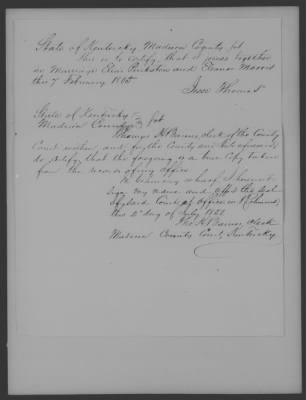 State of Kentucky Madison County Sct
This is to certify that I joined together
in Marriage and Eleanor Morris
this 7 February
Jesse Thomas
State of Kentucky
Madison County Sct
I Thomas H Barnes, clerk of the County
Court within and for the County and State aforesaid
do certify that the foregoing is a true Copy taken
from the records of my office
In testimony whereof I hereunto
sign my name and affix the seal
of said Court at office in Richmond,
this day of July
Tho. H Barnes, Clerk
Madison County Court, Kentucky